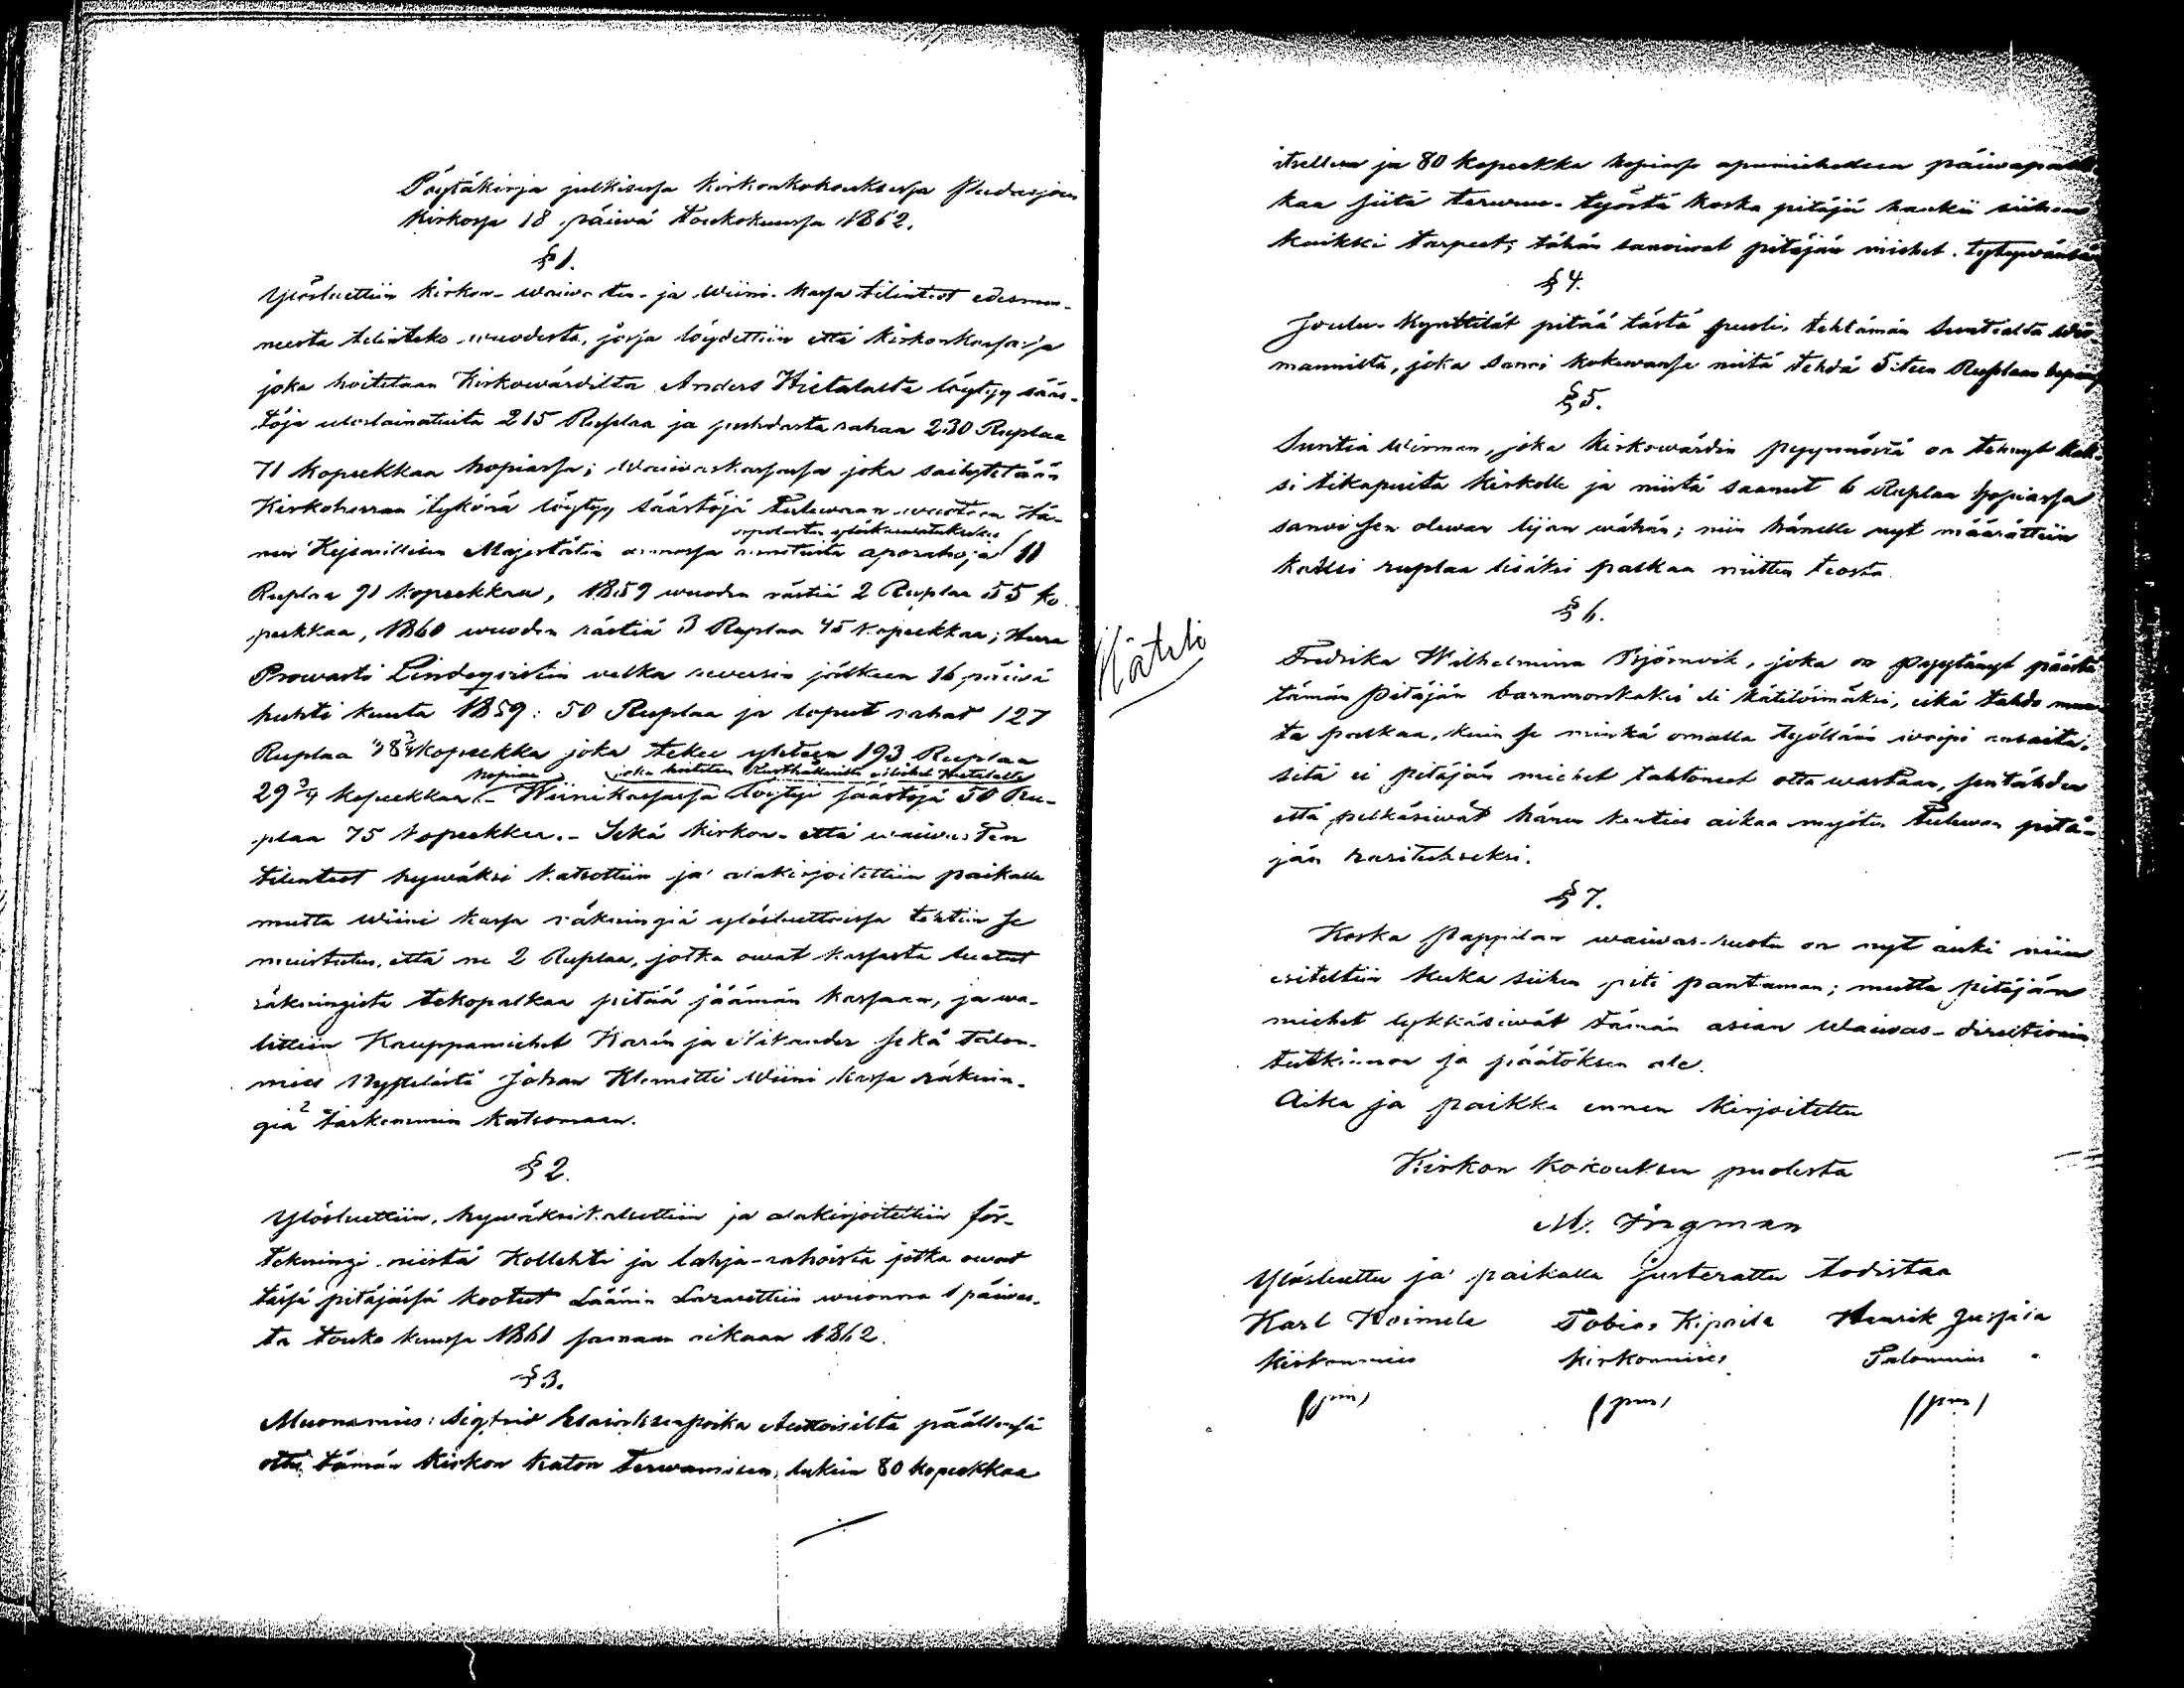 Pöytäkirja julkisessa kirkonkokouksessa Pudasjärven
kirkossa 18 päivä Toukokuussa 1862.
§ 1.
Ylösluettiin kirkon- waiwasten- ja Wiini-kassa tilinteot edesmen-
neestä tilinteko wuodesta, joissa löydettiin että kirkonkassassa
joka hoitetaan Kirkowärdiltä Anders Hietalalta löytyy sääs-
töjä uloslainatuita 215 Ruplaa ja puhdasta rahaa 230 Ruplaa
71 kopeekkaa hopiassa; Waiwaskassassa joka säilytetään
Kirkoherran tykönä löytyy säästöjä Tulewaan wuoteen Hä-
nen Keisarillisen Majestätin armossa annetuita aporahoja 11
Ruplaa 91 kopeekkaa, 1859 wuoden rästiä 2 Ruplaa 55 ko-
peekkaa, 1860 wuoden rästiä 3 Ruplaa 45 kopeekkaa; Herra
Prowasti Lindeqvistin welka reversin jälkeen 16 päiwä
huhti kuuta 1859: 50 Ruplaa ja loput rahat 127
Ruplaa 38 3/4 kopeekka joka tekee yhteen 193 Ruplaa
hopiaa joka hoitetaan
29 3/4 kopeekkaa.- Wiinikassassa löytyi säästöjä 50 Ru-
plaa 75 kopeekkaa.- Sekä kirkon- että waiwasten
tilinteot hywäksi katsottiin ja alakirjoitettiin paikalla
mutta Wiini kassa räkningiä ylösluettaissa tehtiin se
muistutus, että ne 2 Ruplaa, jotka owat kassasta luetut
räkningistä tekopalkaa pitää jäämän kassaan, ja wa-
littiin Kauppamiehet Karin ja Wikander sekä talon-
mies Johan Klemetti Wiini kassa räknin-
giä tarkemmin katsomaan.
§ 2.
Ylösluettiin, hywäksikatsottiin ja alakirjoitettiin för-
tekningi niistä Kollehti ja lahja-rahoista jotka owat
tässä pitäjässä kootut Läänin Lazarettiin wuonna 1 päiwäs-
tä touko kuussa 1861 samaan aikaan 1862.
§ 3.
Muonamies: Sigfrid Auttoisilta päällensä
otti tämän kirkon katon terwamisen, lukein 80 kopeekkaa
itsellensä ja 80 kopeekka hopiassa apumiehellensä päiwäpal-
kaa siitä terwaus-työstä koska pitäjä hankii siihen
kaikki tarpeet; tähän sanoiwat pitäjän miehet tytywäns
§ 4.
Joulu-kynttilät pitää tästä puolin tehtämän Suntialta Wir-
mannilta, joka sanoi kokewansa niitä tehdä 5:teen Ruplaan
§ 5.
Suntia Wirman, joka kirkowärdin pyynnöstä on tehnyt kak-
si tikapuita kirkolle ja niistä saanut 6 Ruplaa hopiassa
sanoi sen olewan lijan wähän; niin hänelle nyt määrättiin
kaksi ruplaa lisäksi palkaa niitten teosta.
§ 6.
Kätilö
Fredrika Wilhelmina Björnvik, joka on pyytänyt päästä
tämän Pitäjän barnmorskaksi eli kätilöimäksi, eikä tahdo muu-
ta palkaa, kuin se minkä omalla työllään woipi ansaita,
sitä ei pitäjän miehet tahtoneet otta wastaan, sentähden
että pelkäsiwät hänen kenties aikaa myöten tulewan pitä-
jän rasitukseksi.
§ 7.
Koska Pappilan waiwas-ruotu on nyt auki niin
esiteltiin kuka siihen piti pantaman; mutta pitäjän
miehet lykkäsiwät tämän asian Waiwas-direktionin
tutkinnon ja päätöksen ale.
Aika ja paikka ennen kirjoitettu
Kirkon kokouksen puolesta
M. Ingman
Ylösluettu ja paikalla justerattu todistaa
Karl Koimela Tobias Kipoila Henrik Jussila
kirkonmies kirkonmies Talonmies
(pm) (pm) (pm)